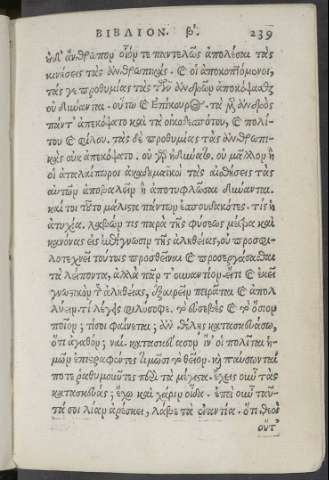 ΒΙΒΛΙΟΝ. β'. 239
οὐδ' ἄνθρωπον οἷόν τε παντελῶς ἀπολέσαι τὰς
κινήσεις τὰς ἀνθρωπικάς. καὶ οἱ ἀποκοπτόμενοι,
τάς γε προθυμίας τὰς τῶν ἀνδρῶν ἀποκόψασθαι
οὐ δύνανται. οὕτω καὶ Ἐπίκουρος. τὰ μὲν ἀνδρὸς
πάντ' ἀπεκόψατο καὶ τὰ οἰκοδεσπότου, καὶ πολί
του καὶ φίλου. τὰς δὲ προθυμίας τὰς ἀνθρωπι-
κὰς οὐκ ἀπεκόψατο. οὐ γὰρ ἠδύνατο. οὐ μᾶλλον ἢ
οἱ ἀταλαίπωροι ἀκαδημαϊκοὶ τὰς αἰσθήσεις τὰς
αὑτῶν ἀποβαλεῖν ἢ ἀποτυφλῶσαι δύνανται.
καί τοι τοῦτο μάλιστα πάντων ἐσπουδακότες. τίς ἡ
ἀτυχία. λαβών τις παρὰ τῆς φύσεως μέτρα καὶ
κανόνας εἰς ἐπίγνωσιν τῆς ἀληθείας, οὐ προσφι-
λοτεχνεῖ τούτοις προσθεῖναι καὶ προσεργάσασθαι
τὰ λείποντα, ἀλλὰ πᾶν τοὐναντίον. εἴ τι καὶ ἔχει
γνωστικὸν τῆς ἀληθείας, ἐξαιρεῖν πειρᾶται καὶ ἀπολ
λύειν. τί λέγεις φιλόσοφε. τὸ εὐσεβὲς καὶ τὸ ὅσιον
ποῖον; τί σοι φαίνεται; ἂν θέλῃς κατασκευάσω,
ὅτι ἀγαθόν; ναί. κατασκεύασον ἵν' οἱ πολῖται ἡ-
μῶν ἐπιστραφέντες τιμῶσι τὸ θεῖον. καὶ παύσωνταί
ποτε ῥαθυμοῦντες περὶ τὰ μέγιστα. ἔχεις οὖν τὰς
κατασκευάς; ἔχω καὶ χάριν οἶδα. ἐπεὶ οὖν ταῦ-
τά σοι λίαν ἀρέσκει, λάβε τὰ ἐναντία. ὅτι θεοὶ
οὔτ'